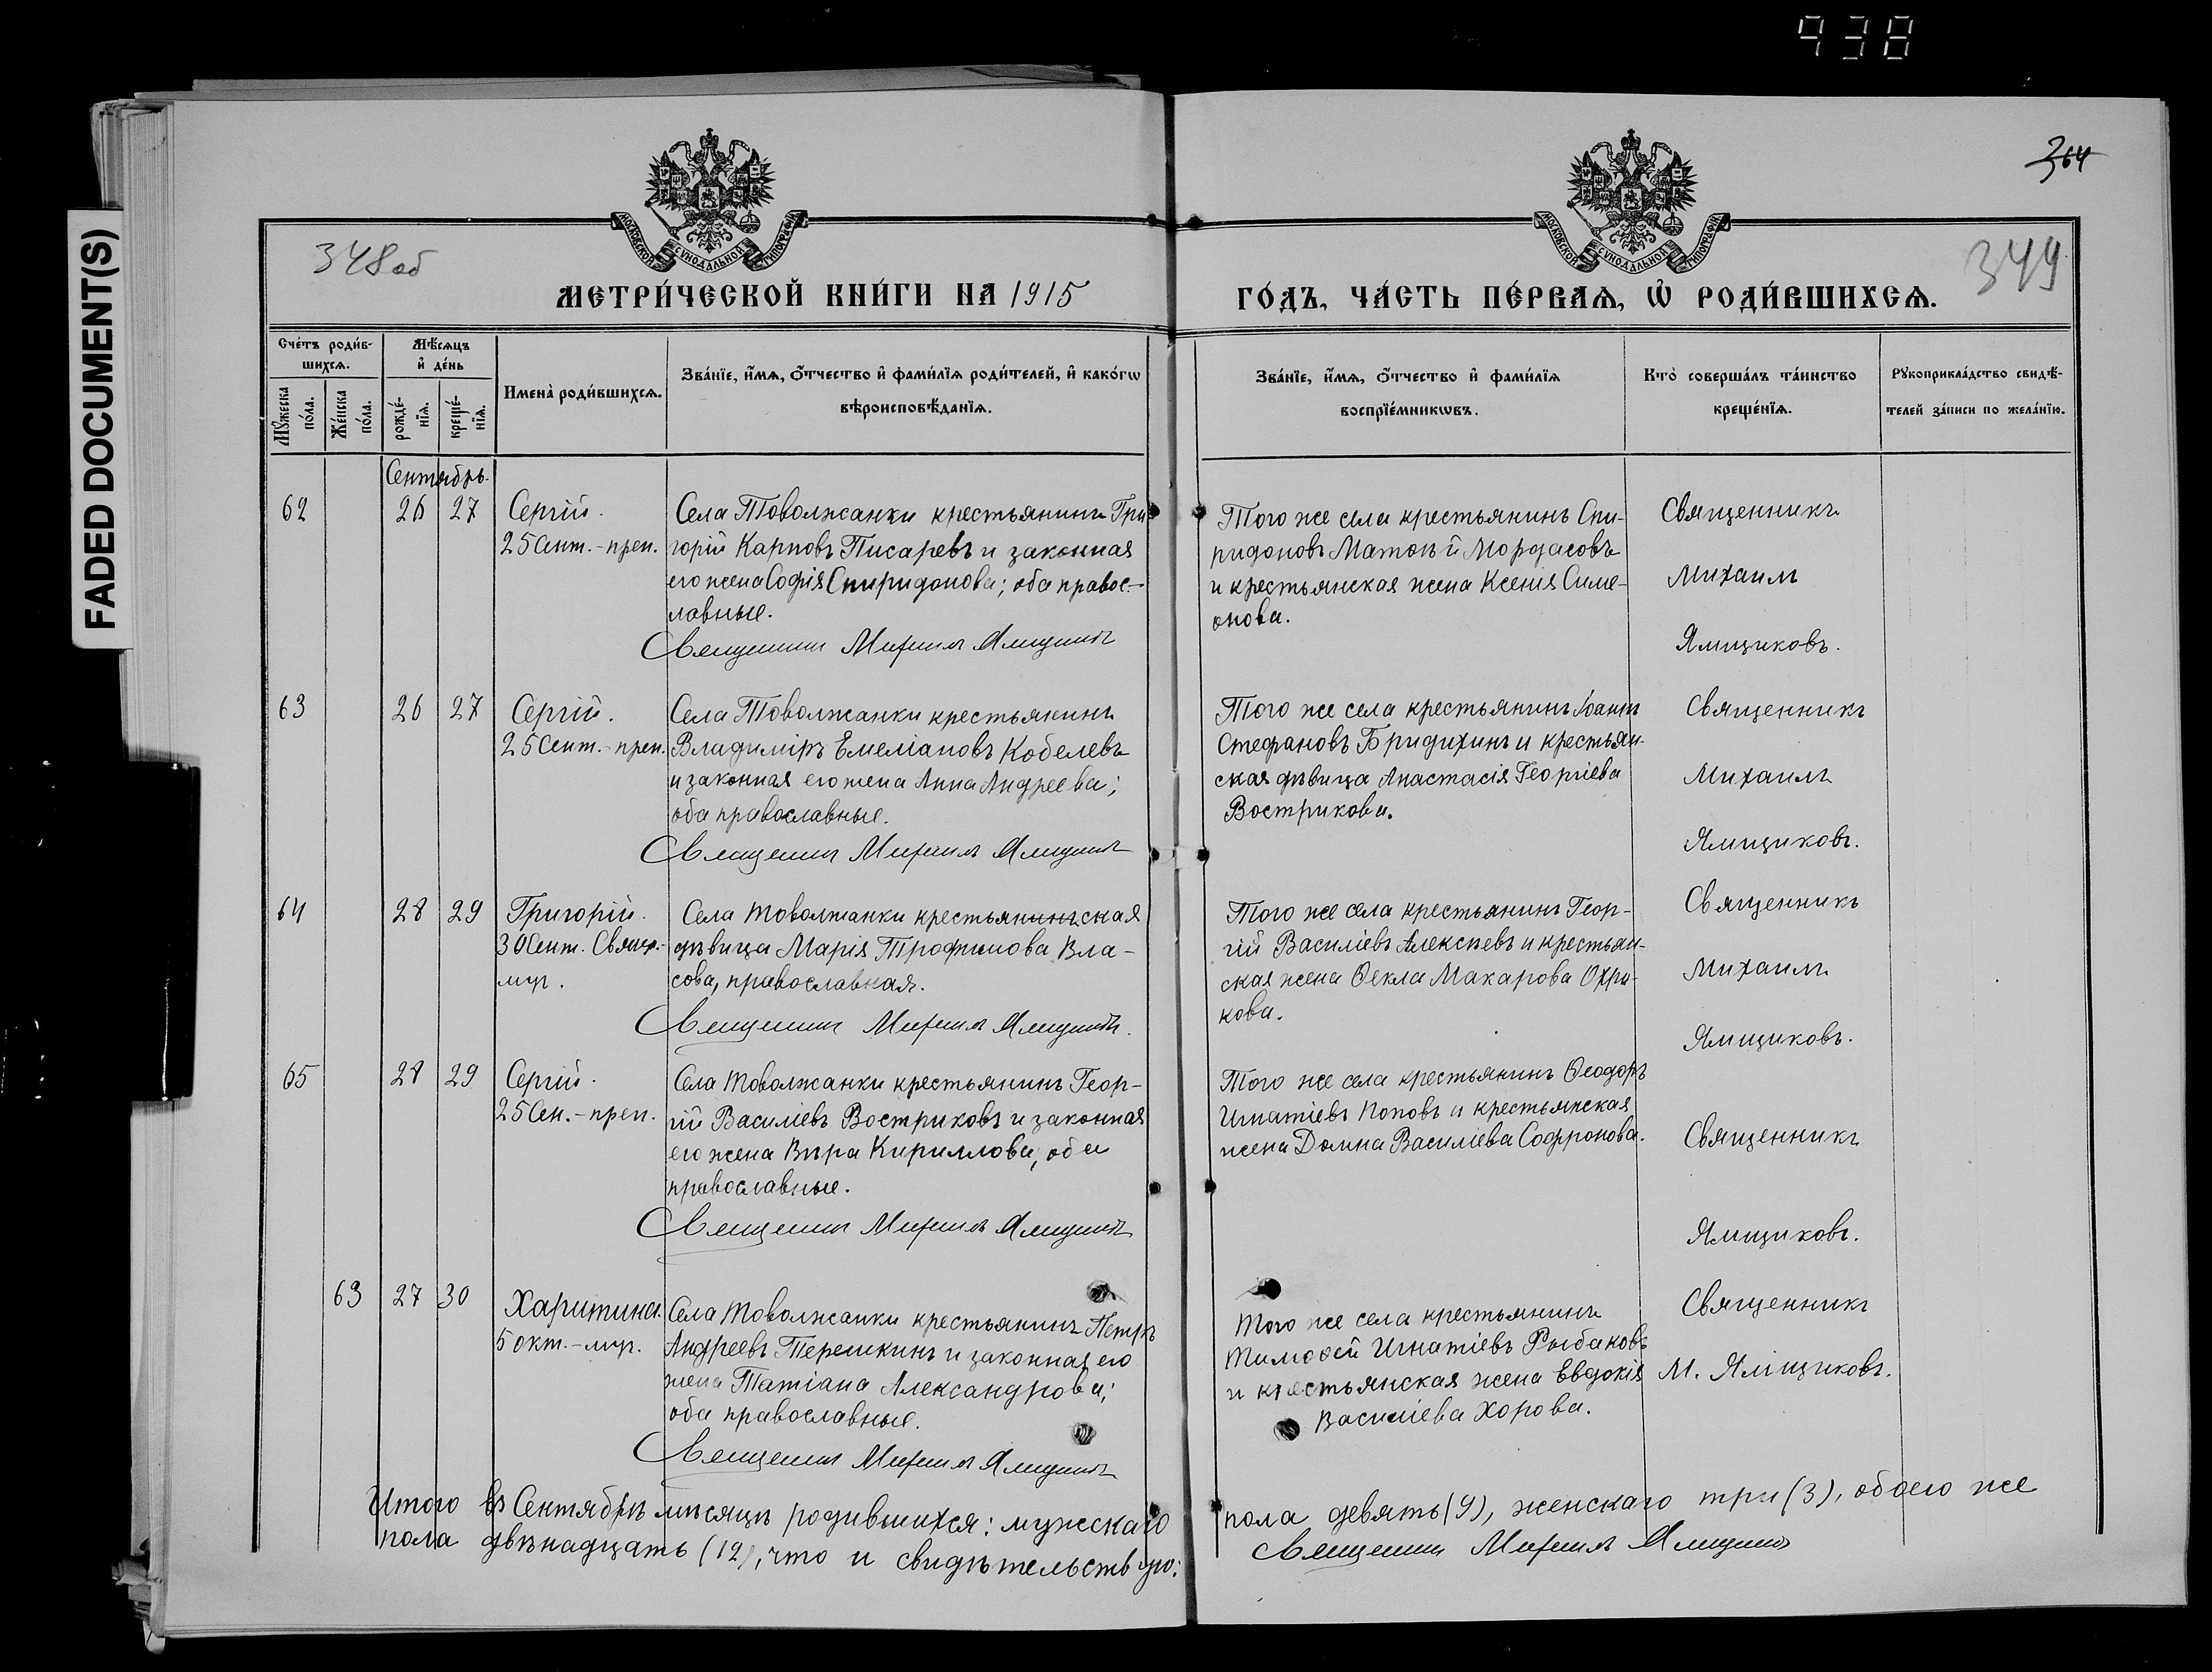 938
FADED DOCUMENT(S)
364
348об
349
МОСКОВСКОЙ СѴНОДАЛЬНОЙ ТИПОГРАФІИ
МОСКОВСКОЙ СѴНОДАЛЬНОЙ ТИПОГРАФІИ
МЕТРИ́ЧЕСКОЙ КНИ́ГИ НА 1915
ГО́ДЪ, ЧА́СТЬ ПЕ́РВАѦ, Ѽ РОДИ́ВШИХСѦ.
Сче́тъ роди́в-
шихсѧ.
Мꙋжеска по́ла.
Же́нска по́ла.
Мѣ́сѧцъ
и҆ де́нь
рожде́-
нїѧ.
креще́-
нїѧ.
Имена̀ роди́вшихсѧ.
Зва́нїе, и҆́мѧ, ѻ҆́тчество и҆ фами́лїѧ роди́телей, и҆ како́гѡ
вѣроисповѣ́данїѧ.
Зва́нїе, и҆́мѧ, ѻ҆́тчество и҆ фами́лїѧ
воспрїе́мникѡвъ.
Кто̀ соверша́лъ та́инство
креще́нїѧ.
Рꙋкоприкла́дство свидѣ́-
телей за́писи по жела́нїю.
Сентябрь.
62 26 27 Сергій.
25 Сент. - преп.
Села Товолжанки крестьянинъ Гри-
горій Карповъ Писаревъ и законная
его жена Софія Спиридонова; оба правос-
лавные.
Священникъ Михаилъ Ямщиковъ
Того же села крестьянинъ Спи-
ридоновъ Мордасовъ
и крестьянская жена Ксенія Симе-
онова.
Священникъ
Михаилъ
Ямщиковъ.
63 26 27 Сергій.
25 Сент. - преп.
Села Товолжанки крестьянинъ
Владиміръ Емеліановъ Кобелевъ
и законная его жена Анна Андреева;
оба православные.
Священникъ Михаилъ Ямщиковъ
Того же села крестьянинъ Іоаннъ
Стефановъ Бридихинъ и крестьян-
ская дѣвица Анастасія Георгіева
Вострикова.
Священникъ
Михаилъ
Ямщиковъ.
64 28 29 Григорій.
30 Сент. Свящ.-
мчр.
Села Товолжанки крестьянинъская
дѣвица Марія Трофимова Вла-
сова, православная.
Священникъ Михаилъ Ямщиковъ.
Того же села крестьянинъ Геор-
гій Василіевъ Алексѣевъ и крестьян-
ская жена Ѳекла Макарова Охри-
кова.
Священникъ
Михаилъ
Ямщиковъ.
65 28 29 Сергій.
25 Сен. - преп.
Села Товолжанки крестьянинъ Геор-
гій Василіевъ Востриковъ и законная
его жена Вѣра Кириллова, оба
православные.
Священникъ Михаилъ Ямщиковъ
Того же села крестьянинъ Ѳеодоръ
Игнатіевъ Поповъ и крестьянская
жена Домна Василіева Софронова.
Священникъ
Ямщиковъ.
63 27 30 Харитина.
5 окт. - мчр.
Села Товолжанки крестьянинъ Петръ
Андреевъ Терешкинъ и законная его
жена Татіана Александрова;
оба православные.
Священникъ Михаилъ Ямщиковъ
Того же села крестьянинъ
Тимоѳей Игнатіевъ Рыбаковъ
и крестьянская жена Евдокія
Василіева Хорова.
Священникъ
М. Ямщиковъ.
Итого въ Сентябрѣ мѣсяцѣ родившихся: мужскаго
пола девять (9), женскаго три (3), обоего же
пола двѣнадцать (12), что и свидѣтельствую:
Священникъ Михаилъ Ямщиковъ